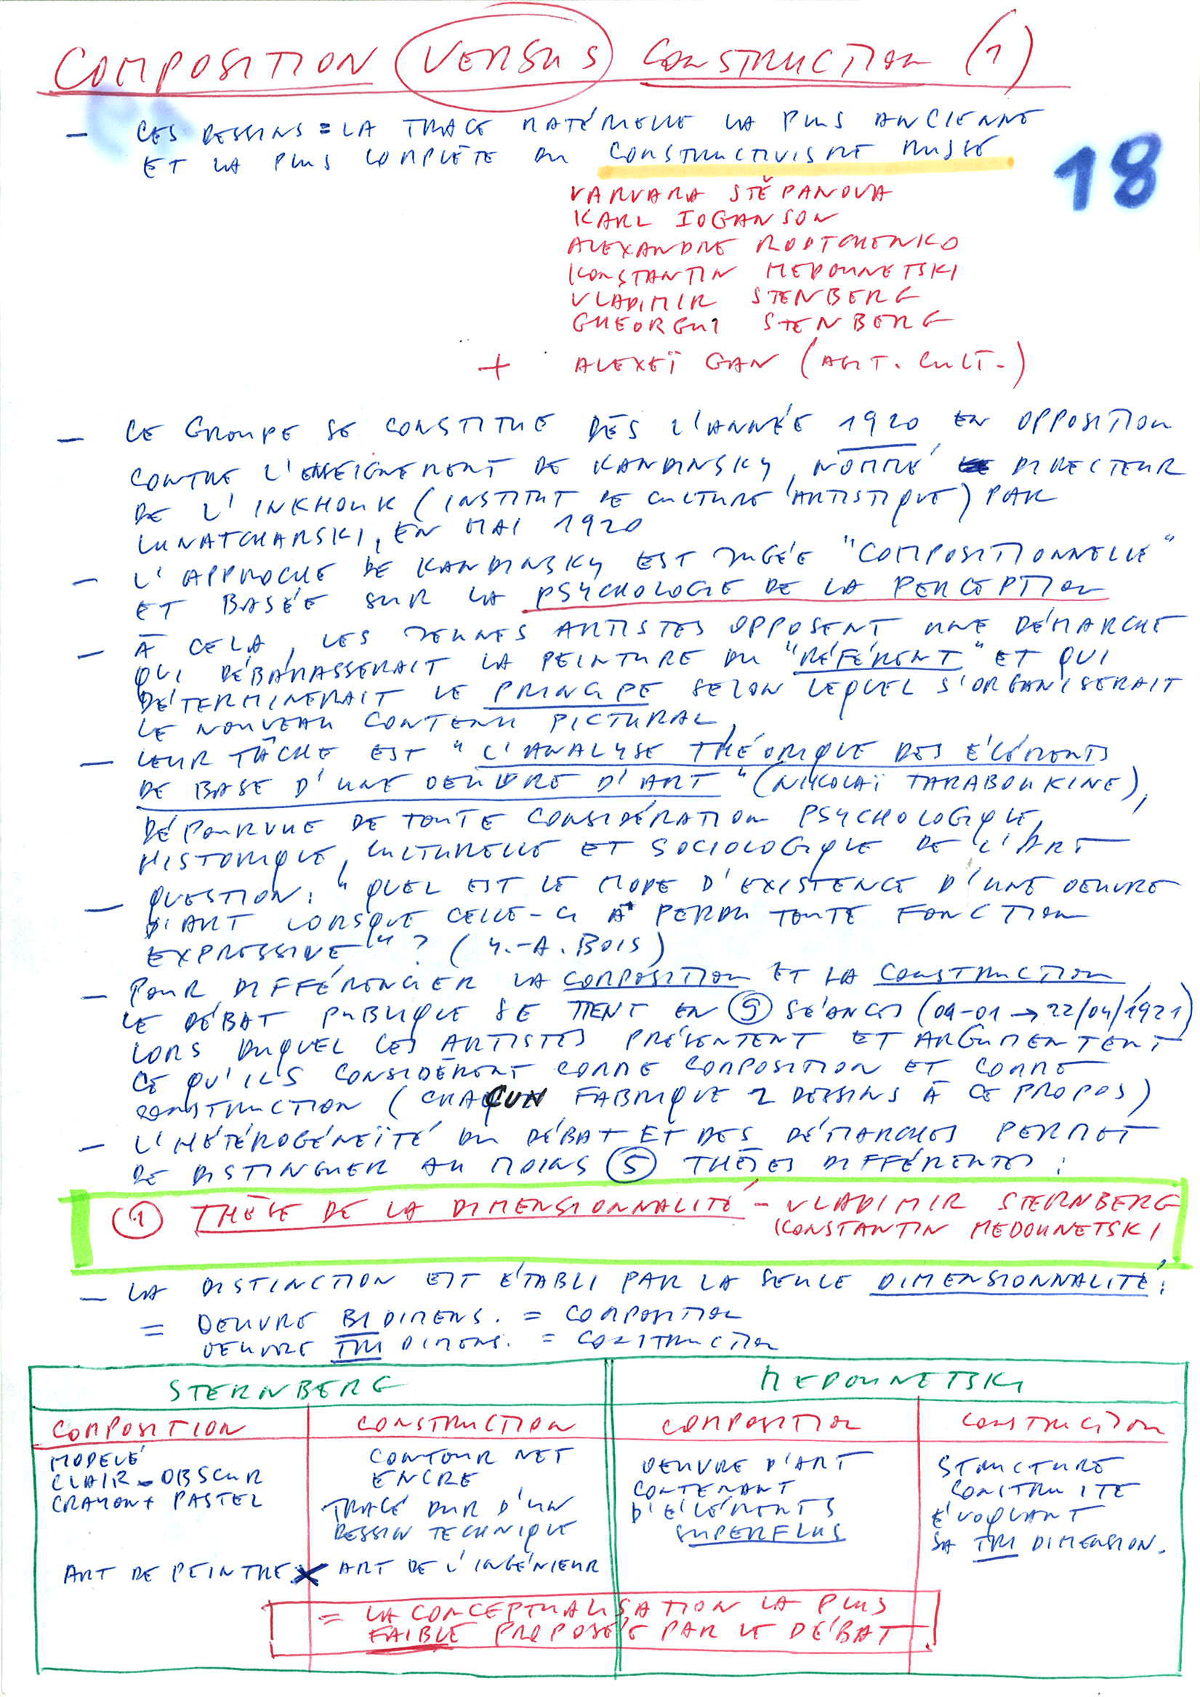 COMPOSITION VERSUS CONSTRUCTION (1)
18
– CES DESSINS = LA TRACE MATÉRIELLE LA PLUS ANCIENNE
ET LA PLUS COMPLÈTE DU CONSTRUCTIVISME RUSSE
VARVARA STĚPANOVA
KARL IOGANSON
ALEXANDRE RODTCHENKO
KONSTANTIN MEDOUNETSKI
VLADIMIR STENBERG
GHEORGUI STENBERG
+ ALEXEÏ GAN (AGIT. CULT.)
– CE GROUPE SE CONSTITUE DÈS L'ANNÉE 1920 EN OPPOSITION
CONTRE L'ENSEIGNEMENT DE KANDINSKY, NOMMÉ DIRECTEUR
DE L'INKHOUK (INSTITUT DE CULTURE ARTISTIQUE) PAR
LUNATCHARSKI, EN MAI 1920
– L'APPROCHE DE KANDINSKY EST JUGÉE "COMPOSITIONNELLE"
ET BASÉE SUR LA PSYCHOLOGIE DE LA PERCEPTION
– À CELA, LES JEUNES ARTISTES OPPOSENT UNE DÉMARCHE
QUI DÉBARASSERAIT LA PEINTURE DU "RÉFÉRENT" ET QUI
DÉTERMINERAIT LE PRINCIPE SELON LEQUEL S'ORGANISERAIT
LE NOUVEAU CONTENU PICTURAL,
– LEUR TÂCHE EST "L'ANALYSE THÉORIQUE DES ÉLÉMENTS
DE BASE D'UNE OEUVRE D'ART" (NIKOLAÏ TARABOUKINE),
DÉPOURVUE DE TOUTE CONSIDÉRATION PSYCHOLOGIQUE,
HISTORIQUE, CULTURELLE ET SOCIOLOGIQUE DE L'ART
– QUESTION: "QUEL EST LE MODE D'EXISTENCE D'UNE OEUVRE
D'ART LORSQUE CELLE-CI A PERDU TOUTE FONCTION
EXPRESSIVE"? (Y.-A. BOIS)
– POUR DIFFÉRENCIER LA COMPOSITION ET LA CONSTRUCTION,
LE DÉBAT PUBLIQUE SE TIENT EN 9 SÉANCES (01-01 → 22/04/1921)
LORS DUQUEL CES ARTISTES PRÉSENTENT ET ARGUMENTENT
CE QU'ILS CONSIDÈRENT COMME COMPOSITION ET COMME
CONSTRUCTION (CHACUN FABRIQUE 2 DESSINS À CE PROPOS)
– L'HÉTÉROGÉNEÏTÉ DU DÉBAT ET DES DÉMARCHES PERMET
DE DISTINGUER AU MOINS 5 THÈSES DIFFÉRENTES:
1 THÈSE DE LA DIMENSIONNALITÉ – VLADIMIR STERNBERG
KONSTANTIN MEDOUNETSKI
– LA DISTINCTION EST ÉTABLI PAR LA SEULE DIMENSIONNALITÉ:
= OEUVRE BIDIMENS. = COMPOSITION
OEUVRE TRIDIMENS. = CONSTRUCTION
STERNBERG
COMPOSITION
MODELÉ
CLAIR-OBSCUR
CRAYON + PASTEL
ART DE PEINTRE X
CONSTRUCTION
CONTOUR NET
ENCRE
TRACÉ DUR D'UN
DESSIN TECHNIQUE
ART DE L'INGÉNIEUR
MEDOUNETSKI
COMPOSITION
OEUVRE D'ART
CONTENANT
D'ÉLÉMENTS
SUPERFLUS
CONSTRUCTION
STRUCTURE
CONSTRUITE
ÉVOQUANT
SA TRI DIMENSION.
= LA CONCEPTUALISATION LA PLUS
FAIBLE PROPOSÉE PAR LE DÉBAT.